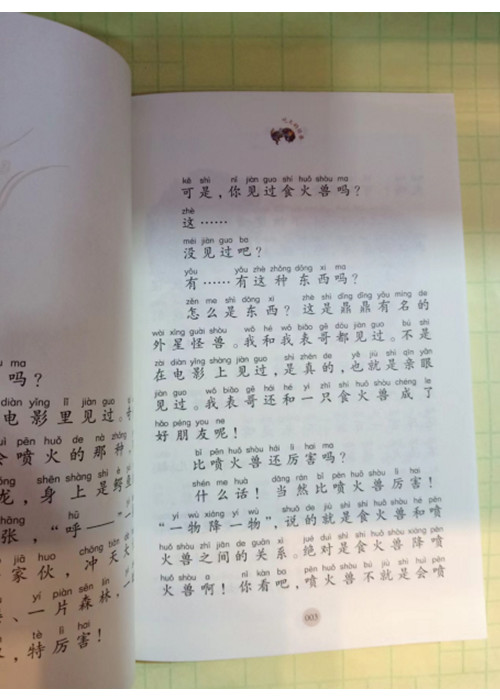 ma
吗？
diàn yǐng lǐ jiàn guo
电影里见过。
pēn huǒ de nà zhǒng
喷火的那种，
shēn shàng shì è
龙，身上是鳄
hū
张，“呼——”一
jiā huo chōng tiān
家伙，冲天
yí piàn sēn lín
、一片森林，
tè lì hai
，特厉害！
kě shì nǐ jiàn guo shí huǒ shòu ma
可是，你见过食火兽吗？
zhè
这……
méi jiàn guo ba
没见过吧？
yǒu yǒu zhè zhǒng dōng xi ma
有……有这种东西吗？
zěn me shì dōng xi zhè shì dǐng dǐng yǒu míng de
怎么是东西？这是鼎鼎有名的
wài xīng guài shòu wǒ hé wǒ biǎo gē dōu jiàn guo bú shì
外星怪兽。我和我表哥都见过。不是
zài diàn yǐng shàng jiàn guo shì zhēn de yě jiù shì qīn yǎn
在电影上见过，是真的，也就是亲眼
jiàn guo wǒ biǎo gē hái hé yì zhī shí huǒ shòu chéng le
见过。我表哥还和一只食火兽成了
hǎo péng you ne
好朋友呢！
bǐ pēn huǒ shòu hái lì hai ma
比喷火兽还厉害吗？
shén me huà dāng rán bǐ pēn huǒ shòu lì hai
什么话！当然比喷火兽厉害！
yí wù xiáng yí wù shuō de jiù shì shí huǒ shòu hé pēn
“一物降一物”，说的就是食火兽和喷
huǒ shòu zhī jiān de guān xì jué duì shì shí huǒ shòu xiáng pēn
火兽之间的关系。绝对是食火兽降喷
huǒ shòu a nǐ kàn ba pēn huǒ shòu bú jiù shì huì pēn
火兽啊！你看吧，喷火兽不就是会喷
003